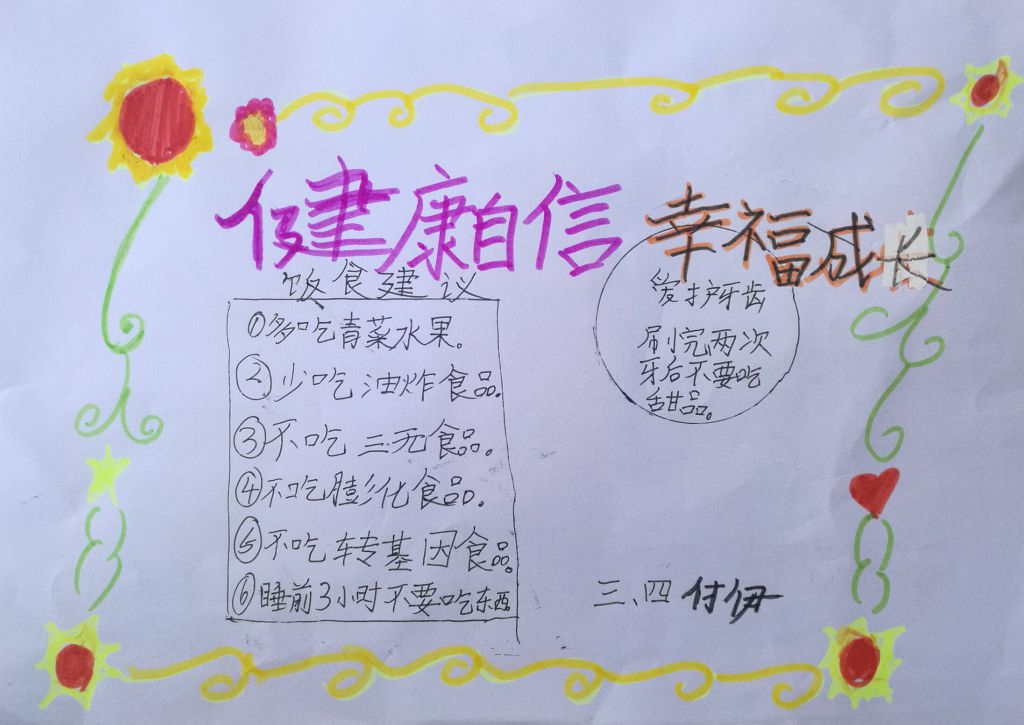 健康自信 幸福成长
饮食建议
①多吃青菜水果。
②少吃油炸食品。
③不吃三无食品。
④不吃膨化食品。
⑤不吃转基因食品。
⑥睡前3小时不要吃东西
爱护牙齿
刷完两次
牙后不要吃
甜品。
三、四 付伊